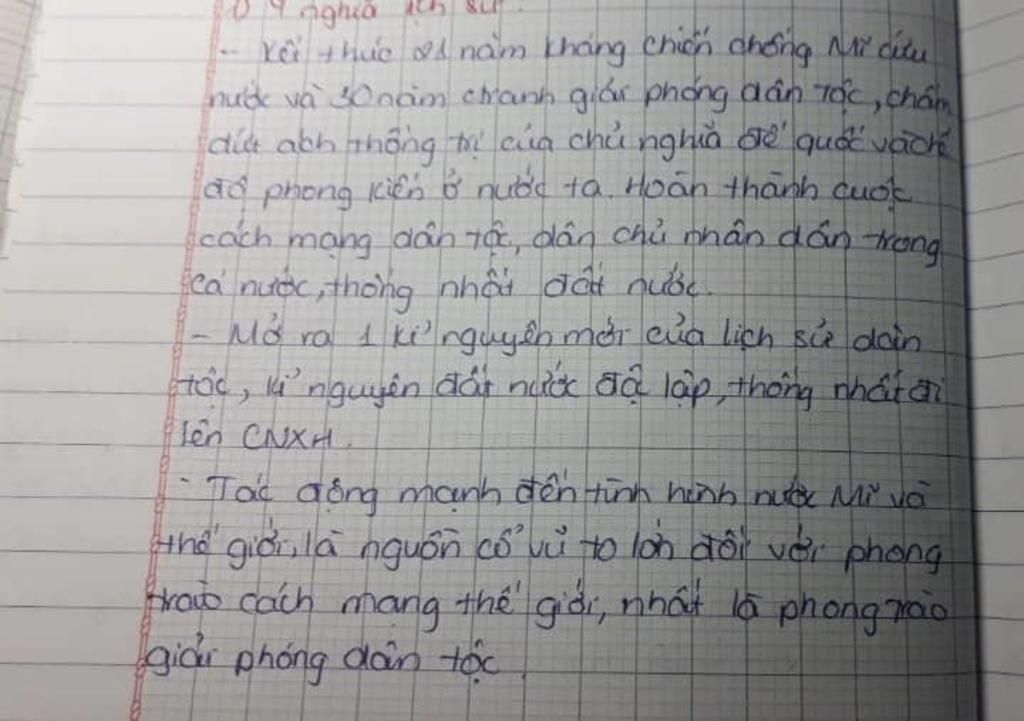 Ý nghĩa lịch sử.
- Kết thúc 21 năm kháng chiến chống Mĩ cứu
nước và 30 năm ctranh giải phóng dân tộc, chấm
dứt ách thống trị của chủ nghĩa đế quốc và chế
độ phong kiến ở nước ta. Hoàn thành cuộc
cách mạng dân tộc, dân chủ nhân dân trong
cả nước, thống nhất đất nước.
- Mở ra 1 kỉ nguyên mới của lịch sử dân
tộc, kỉ nguyên đất nước độ lập, thống nhất đi
lên CNXH.
- Tác động mạnh đến tình hình nước Mĩ và
thế giới, là nguồn cổ vũ to lớn đối với phong
trào cách mạng thế giới, nhất là phong trào
giải phóng dân tộc